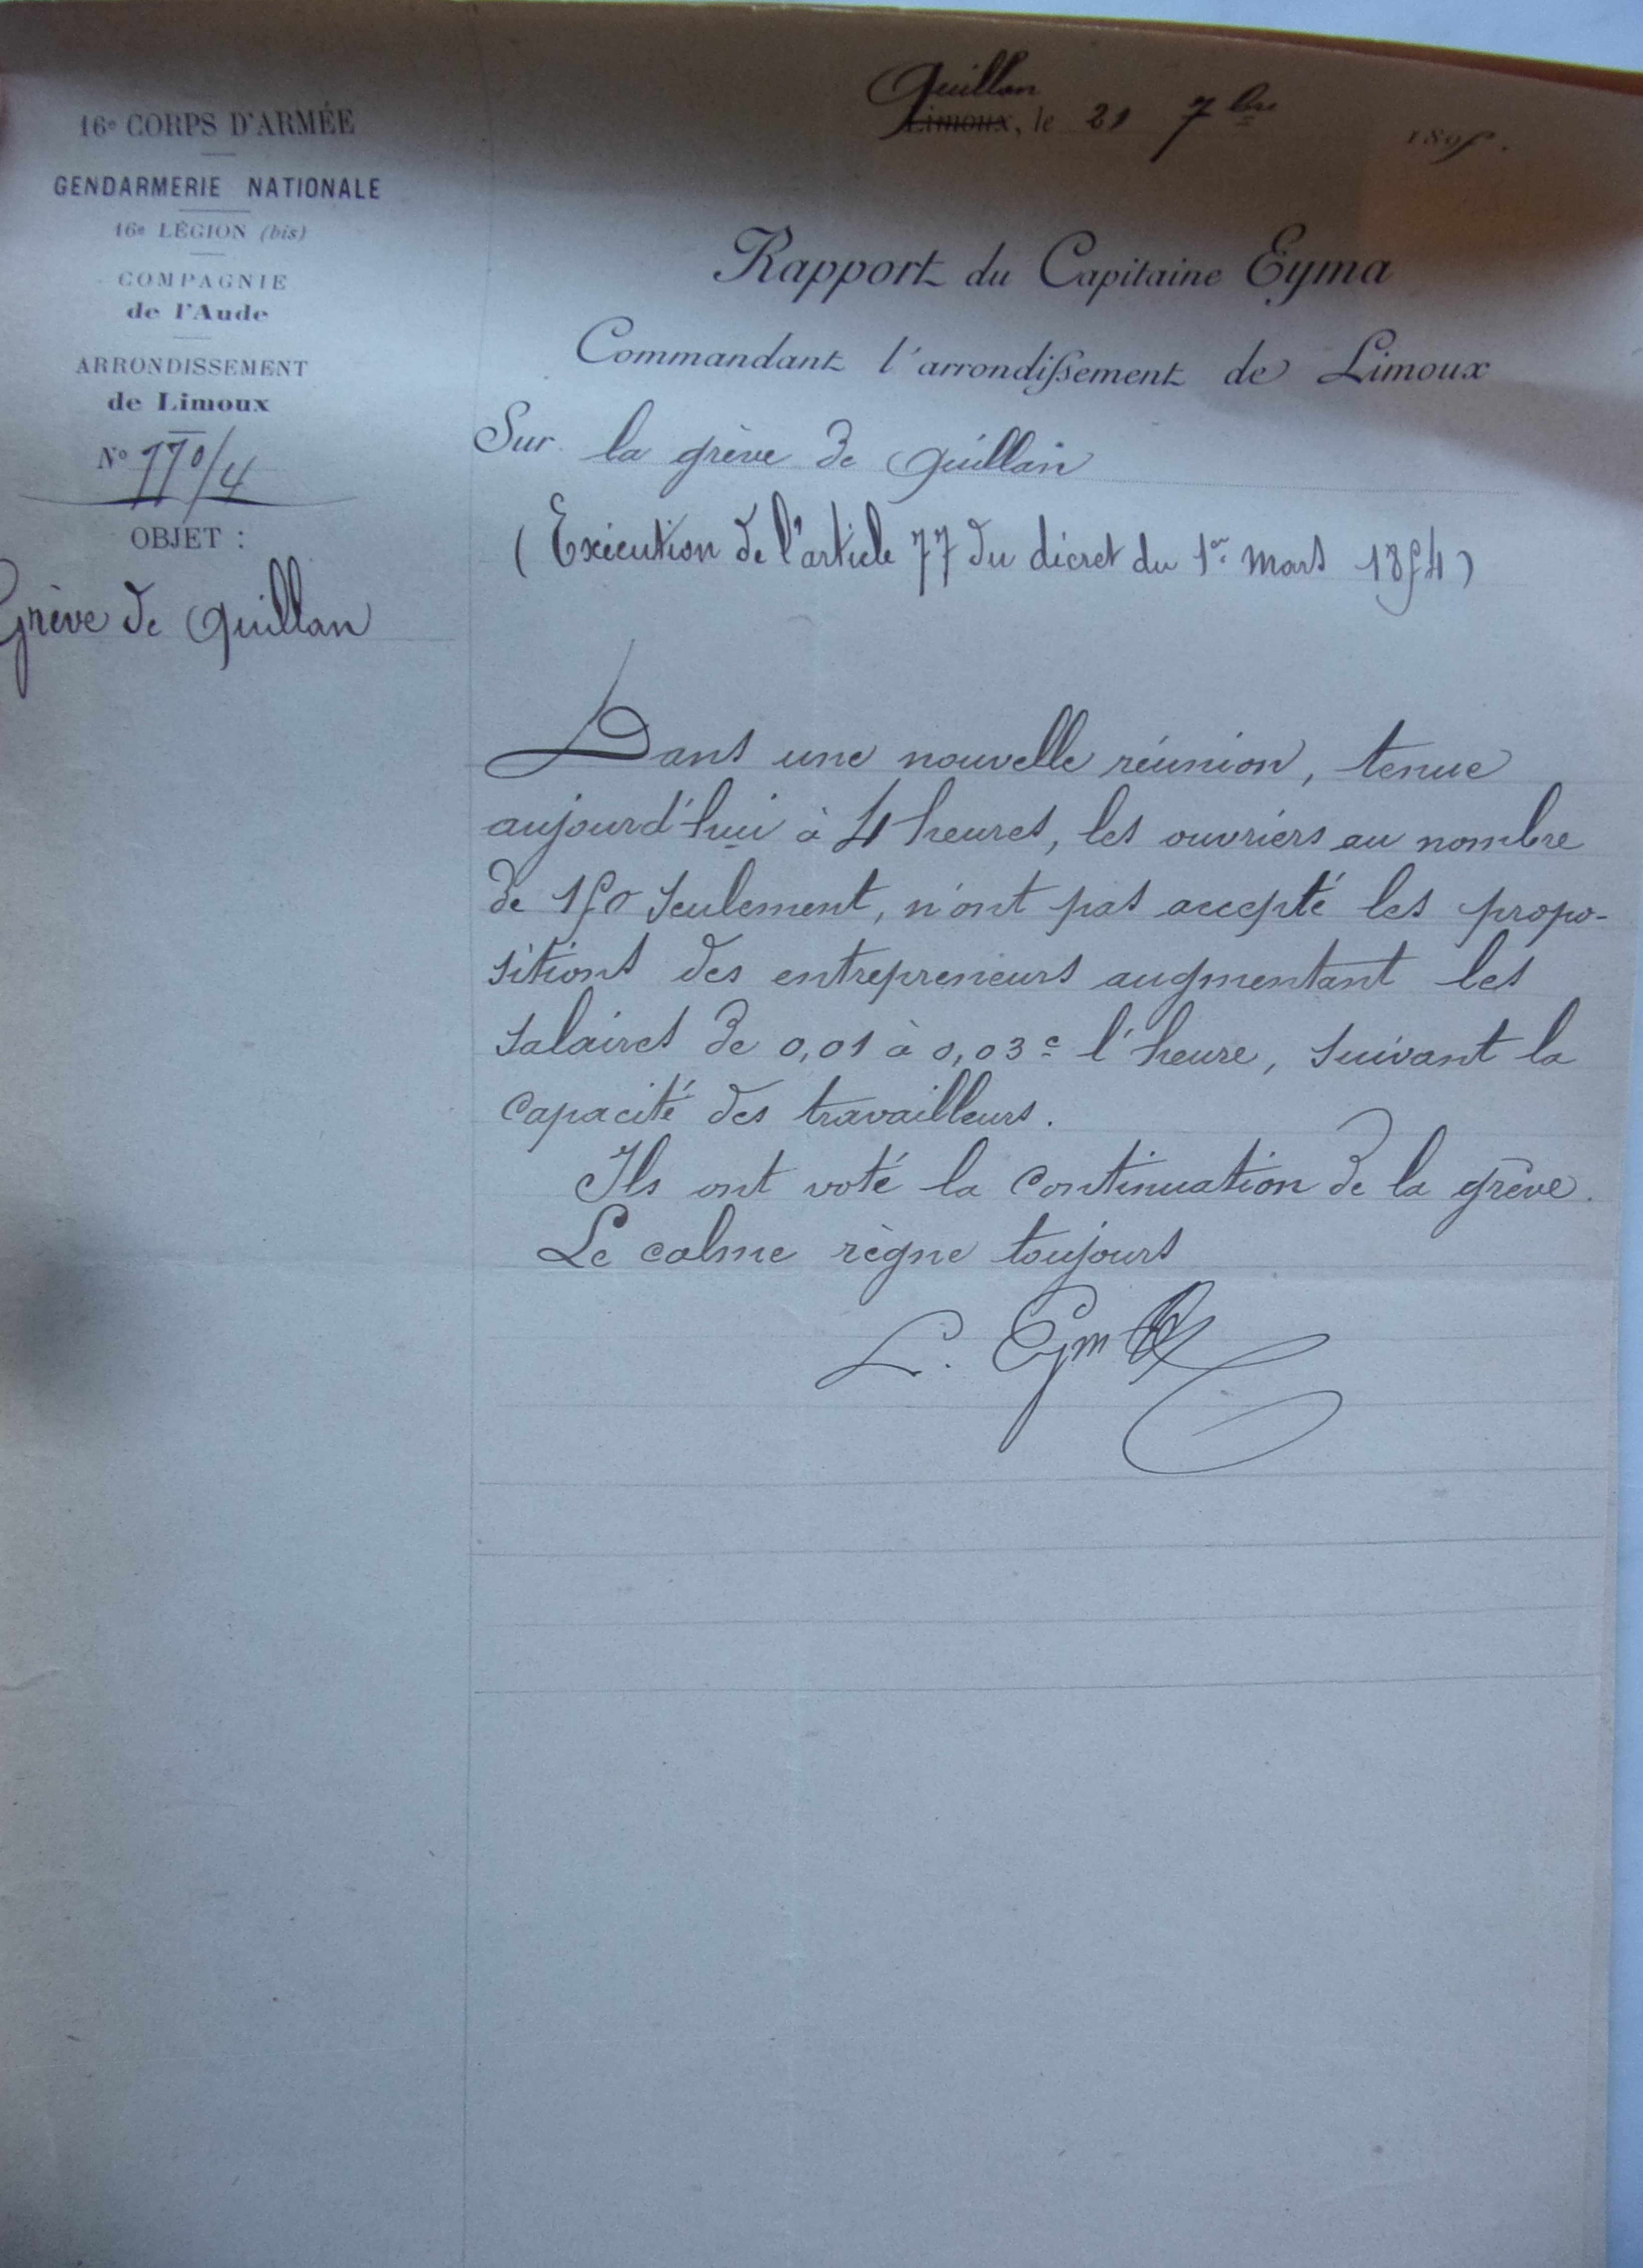 16e CORPS D'ARMÉE
GENDARMERIE NATIONALE
16e LÉGION (bis)
COMPAGNIE
de l'Aude
ARRONDISSEMENT
de Limoux
N° 170/4
OBJET :
Grève de Quillan
Quillan
Limoux, le 21 7bre 1895.
Rapport du Capitaine Eyma
Commandant l'arrondissement de Limoux
Sur la grève de Quillan
(Exécution de l'article 77 du décret du 1er Mars 1854)
Dans une nouvelle réunion, tenue
aujourd'hui à 4 heures, les ouvriers au nombre
de 150 seulement, n'ont pas accepté les propo-
sitions des entrepreneurs augmentant les
salaires de 0,01 à 0,03c l'heure, suivant la
capacité des travailleurs.
Ils ont voté la continuation de la grève.
Le calme règne toujours
L. Eyma